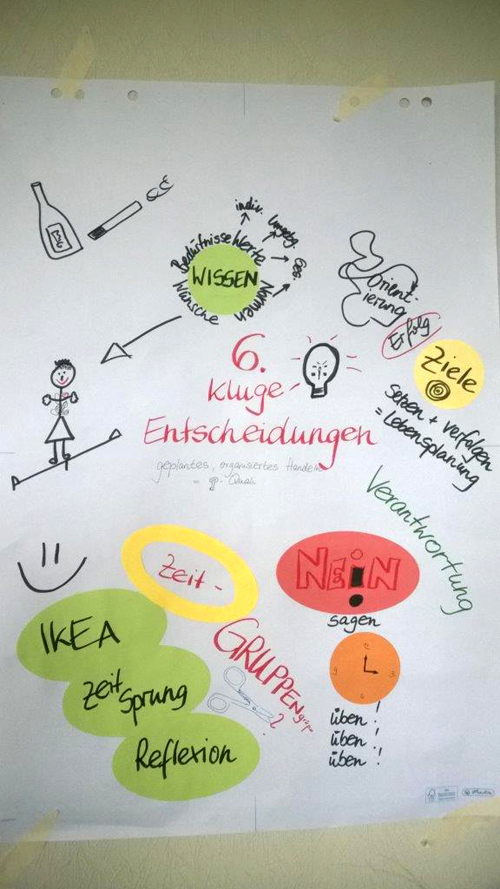 indiv.
Bedürfnisse Werte
WISSEN
Wünsche Normen
Orient-
ierung
Erfolg
Ziele
setzen + verfolgen
= Lebensplanung
6.
kluge
Entscheidungen
geplantes, organisiertes Handeln
Verantwortung
Zeit -
NEiN!
sagen
IKEA
Zeit
Sprung
Reflexion
GRUPPEN
?
üben!
üben!
üben!